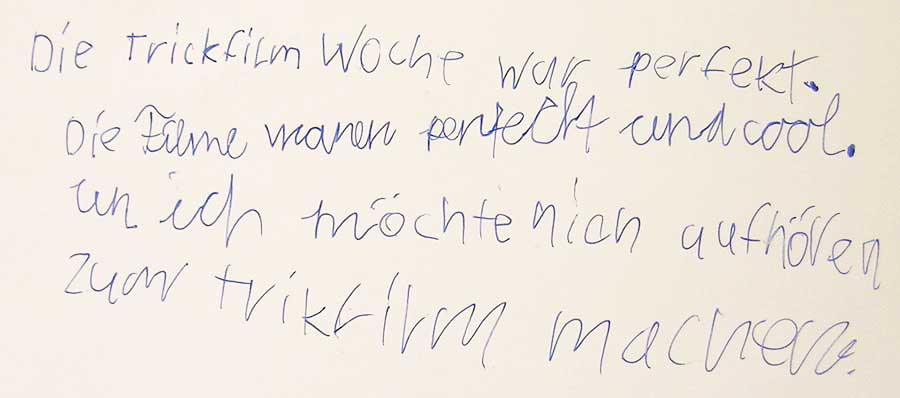 Die Trickfilm Woche war perfekt.
Die Filme waren perfeckt und cool.
un ich möchte nich aufhören
zum trikfilm machen.